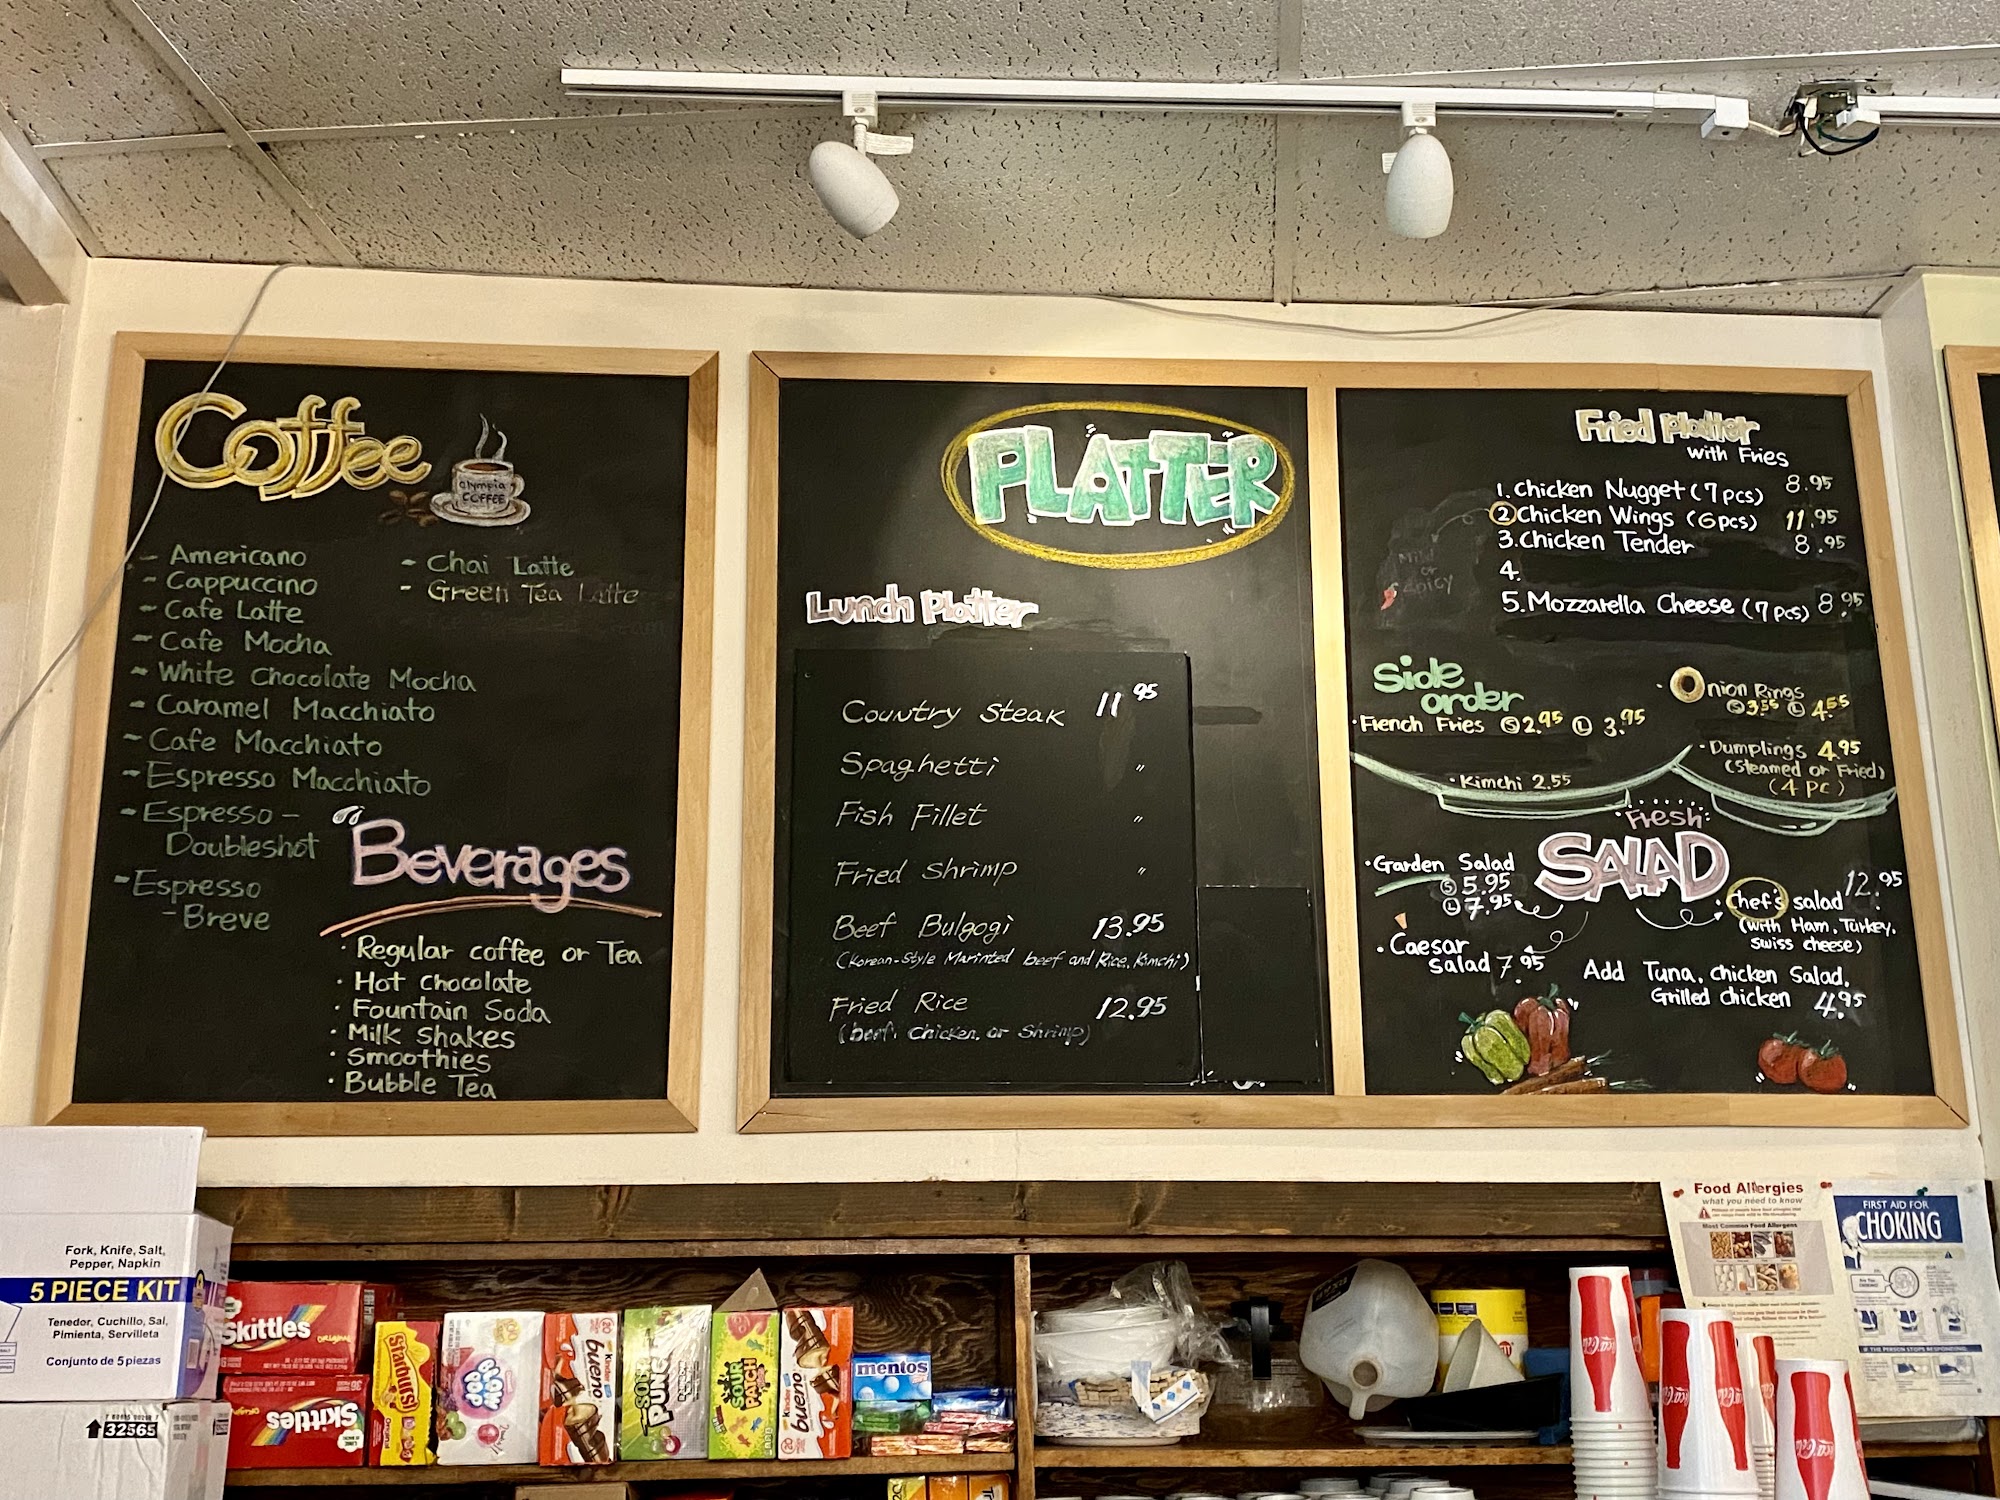 Coffee
Olympia
COFFEE
- Americano
- Cappuccino
- Cafe Latte
- Cafe Mocha
- White Chocolate Mocha
- Caramel Macchiato
- Cafe Macchiato
- Espresso Macchiato
- Espresso -
Doubleshot
- Espresso
- Breve
- Chai Latte
- Green Tea Latte
Beverages
· Regular coffee or Tea
· Hot Chocolate
· Fountain Soda
· Milk Shakes
· Smoothies
· Bubble Tea
PLATTER
Lunch Platter
Country Steak 11 95
Spaghetti "
Fish Fillet "
Fried Shrimp "
Beef Bulgogi 13.95
(Korean-Style Marinted beef and Rice, Kimchi)
Fried Rice 12.95
(beef, Chicken, or Shrimp)
Fried Platter
with Fries
1. Chicken Nugget (7 pcs) 8.95
2 Chicken Wings (6 pcs) 11.95
3. Chicken Tender 8.95
4.
5. Mozzarella Cheese (7 pcs) 8.95
Mild
or
Spicy
Side
order
· French Fries S 2.95 L 3.95
· Kimchi 2.55
· Onion Rings
S 3.55 L 4.55
· Dumplings 4.95
(Steamed or Fried)
(4 PC)
Fresh
SALAD
· Garden Salad
S 5.95
L 7.95
· Caesar
Salad 7.95
· Chef's salad 12.95
(with Ham, Turkey,
swiss cheese)
Add Tuna, chicken Salad,
Grilled chicken 4.95
Fork, Knife, Salt,
Pepper, Napkin
5 PIECE KIT
Tenedor, Cuchillo, Sal,
Pimienta, Servilleta
Conjunto de 5 piezas
32565
Skittles
ORIGINAL
Skittles
Starburst
BLOW
POP
Kinder
bueno
SOUR
PUNCH
SOUR
PATCH
Kinder
bueno
mentos
Food Allergies
what you need to know
Most Common Food Allergens
FIRST AID FOR
CHOKING
IF THE PERSON STOPS RESPONDING
Coca-Cola
Coca-Cola
Coca-Cola